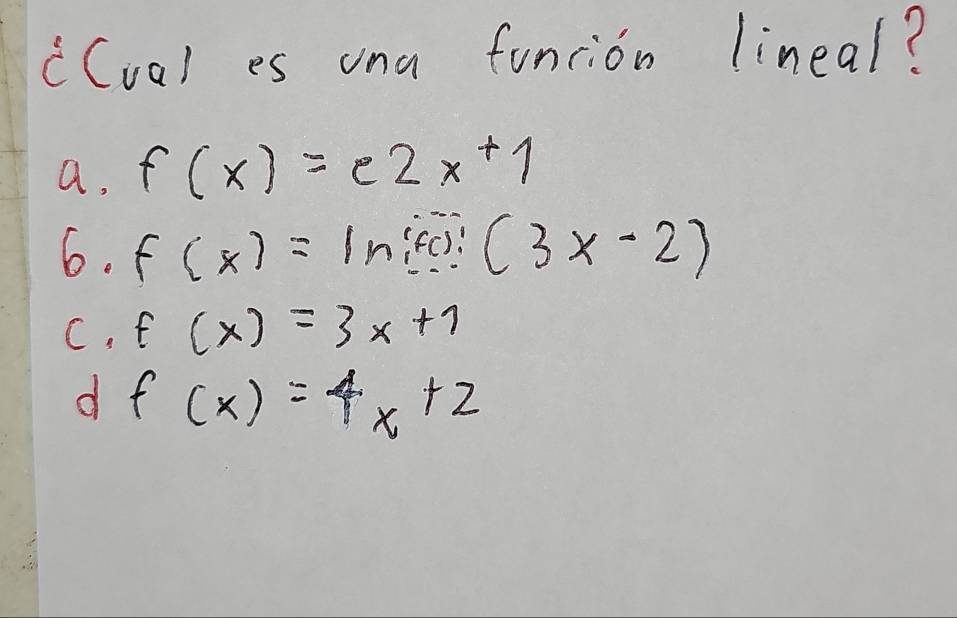 ¿Cual es una función lineal?
a. f(x) = e2x+1
b. f(x) = ln f(): (3x-2)
c. f(x) = 3x+1
d f(x) = 4x+2